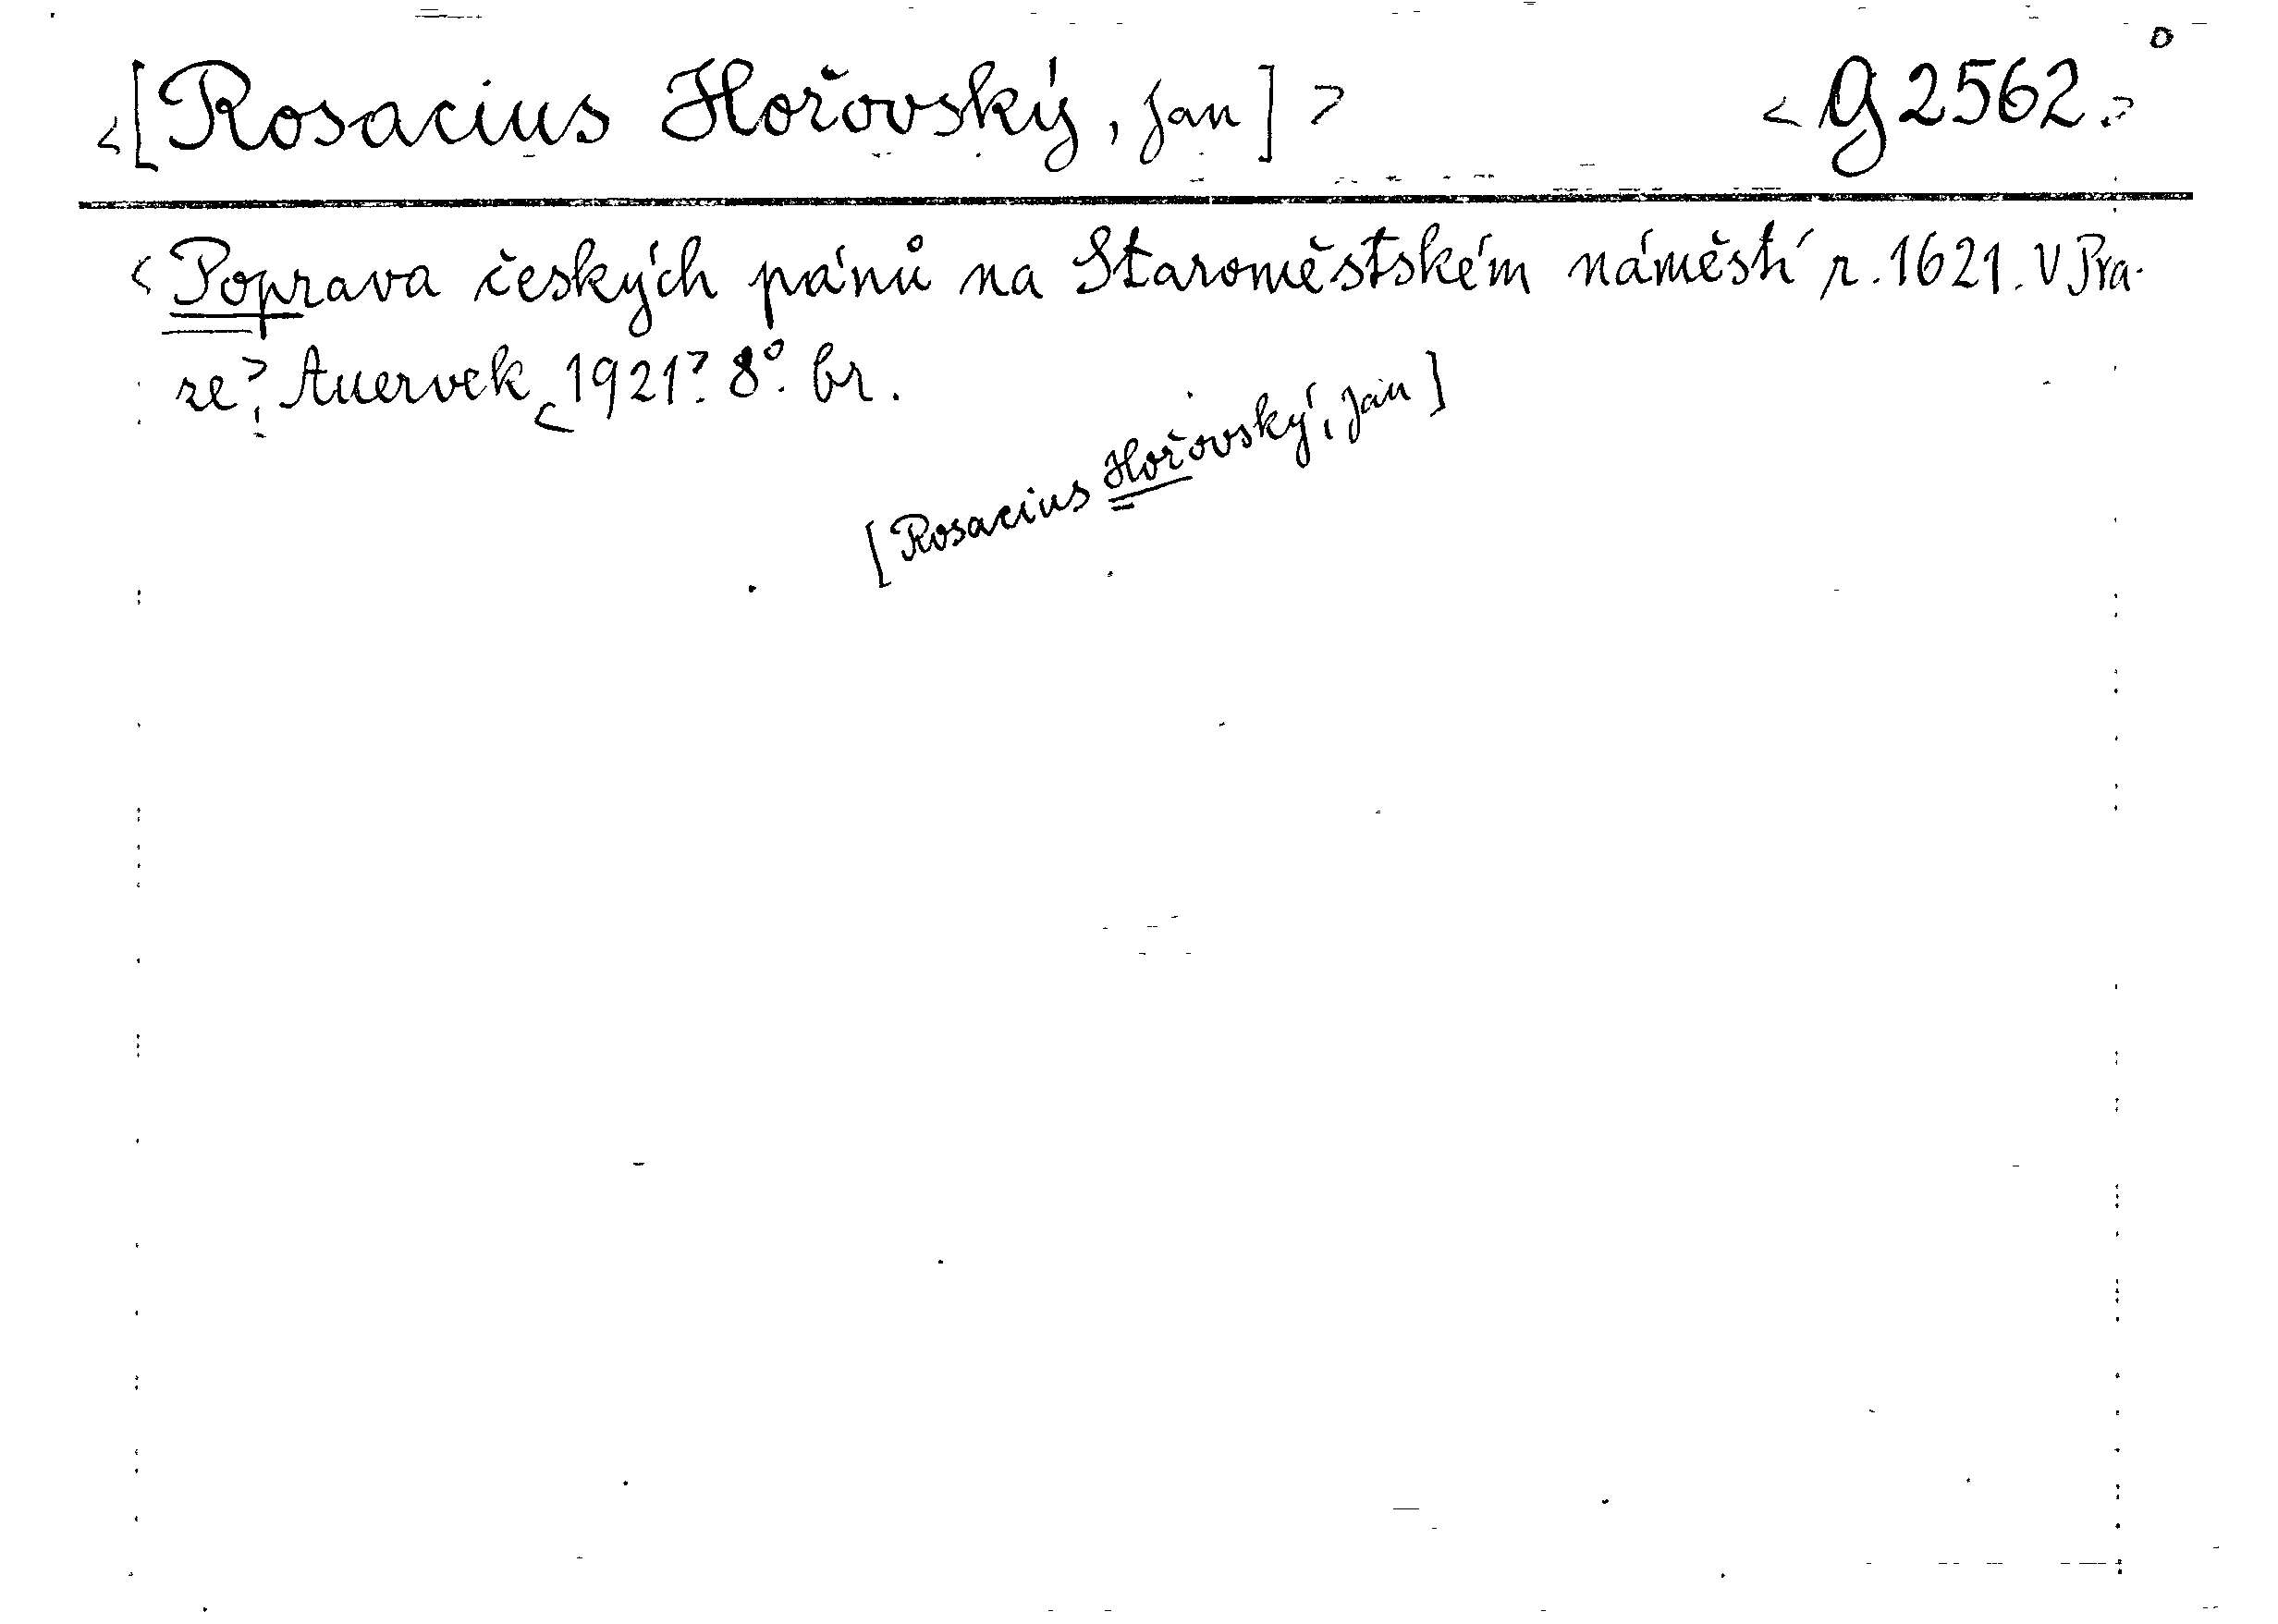 <[Rosacius Hořovský, Jan]> <G 2562.>
<Poprava českých pánů na Staroměstském náměstí r. 1621. V Pra-
ze>, Auervek <1921>. 8°. br.
[Rosacius Hořovský, Jan]